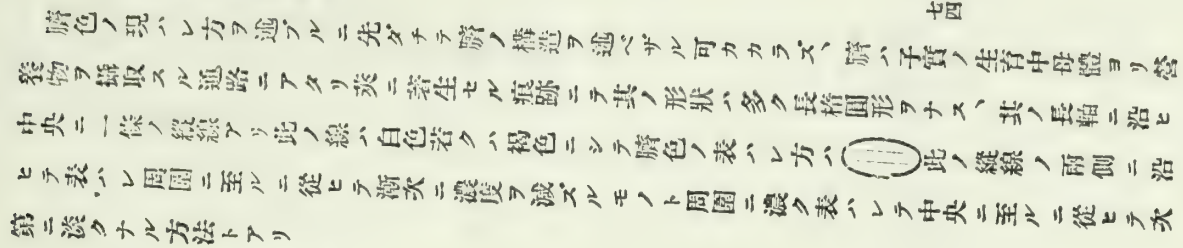 七四
臍色ノ現ハレ方ヲ述ブルニ先ダチテ臍ノ構造ヲ述ベザル可カカラズ、臍ハ子實ノ生育中母體ヨリ營
養物ヲ攝取スル通路ニアタリ莢ニ著生セル痕跡ニテ其ノ形狀ハ多ク長橢圓形ヲナス、其ノ長軸ニ沿ヒ
中央ニ一條ノ縱線アリ此ノ線ハ白色若クハ褐色ニシテ臍色ノ表ハレ方ハ此ノ縱線ノ兩側ニ沿
ヒテ表ハレ周圍ニ至ルニ從ヒテ漸次ニ濃度ヲ減ズルモノト周圍ニ濃ク表ハレテ中央ニ至ルニ從ヒテ次
第ニ淡クナル方法トアリ